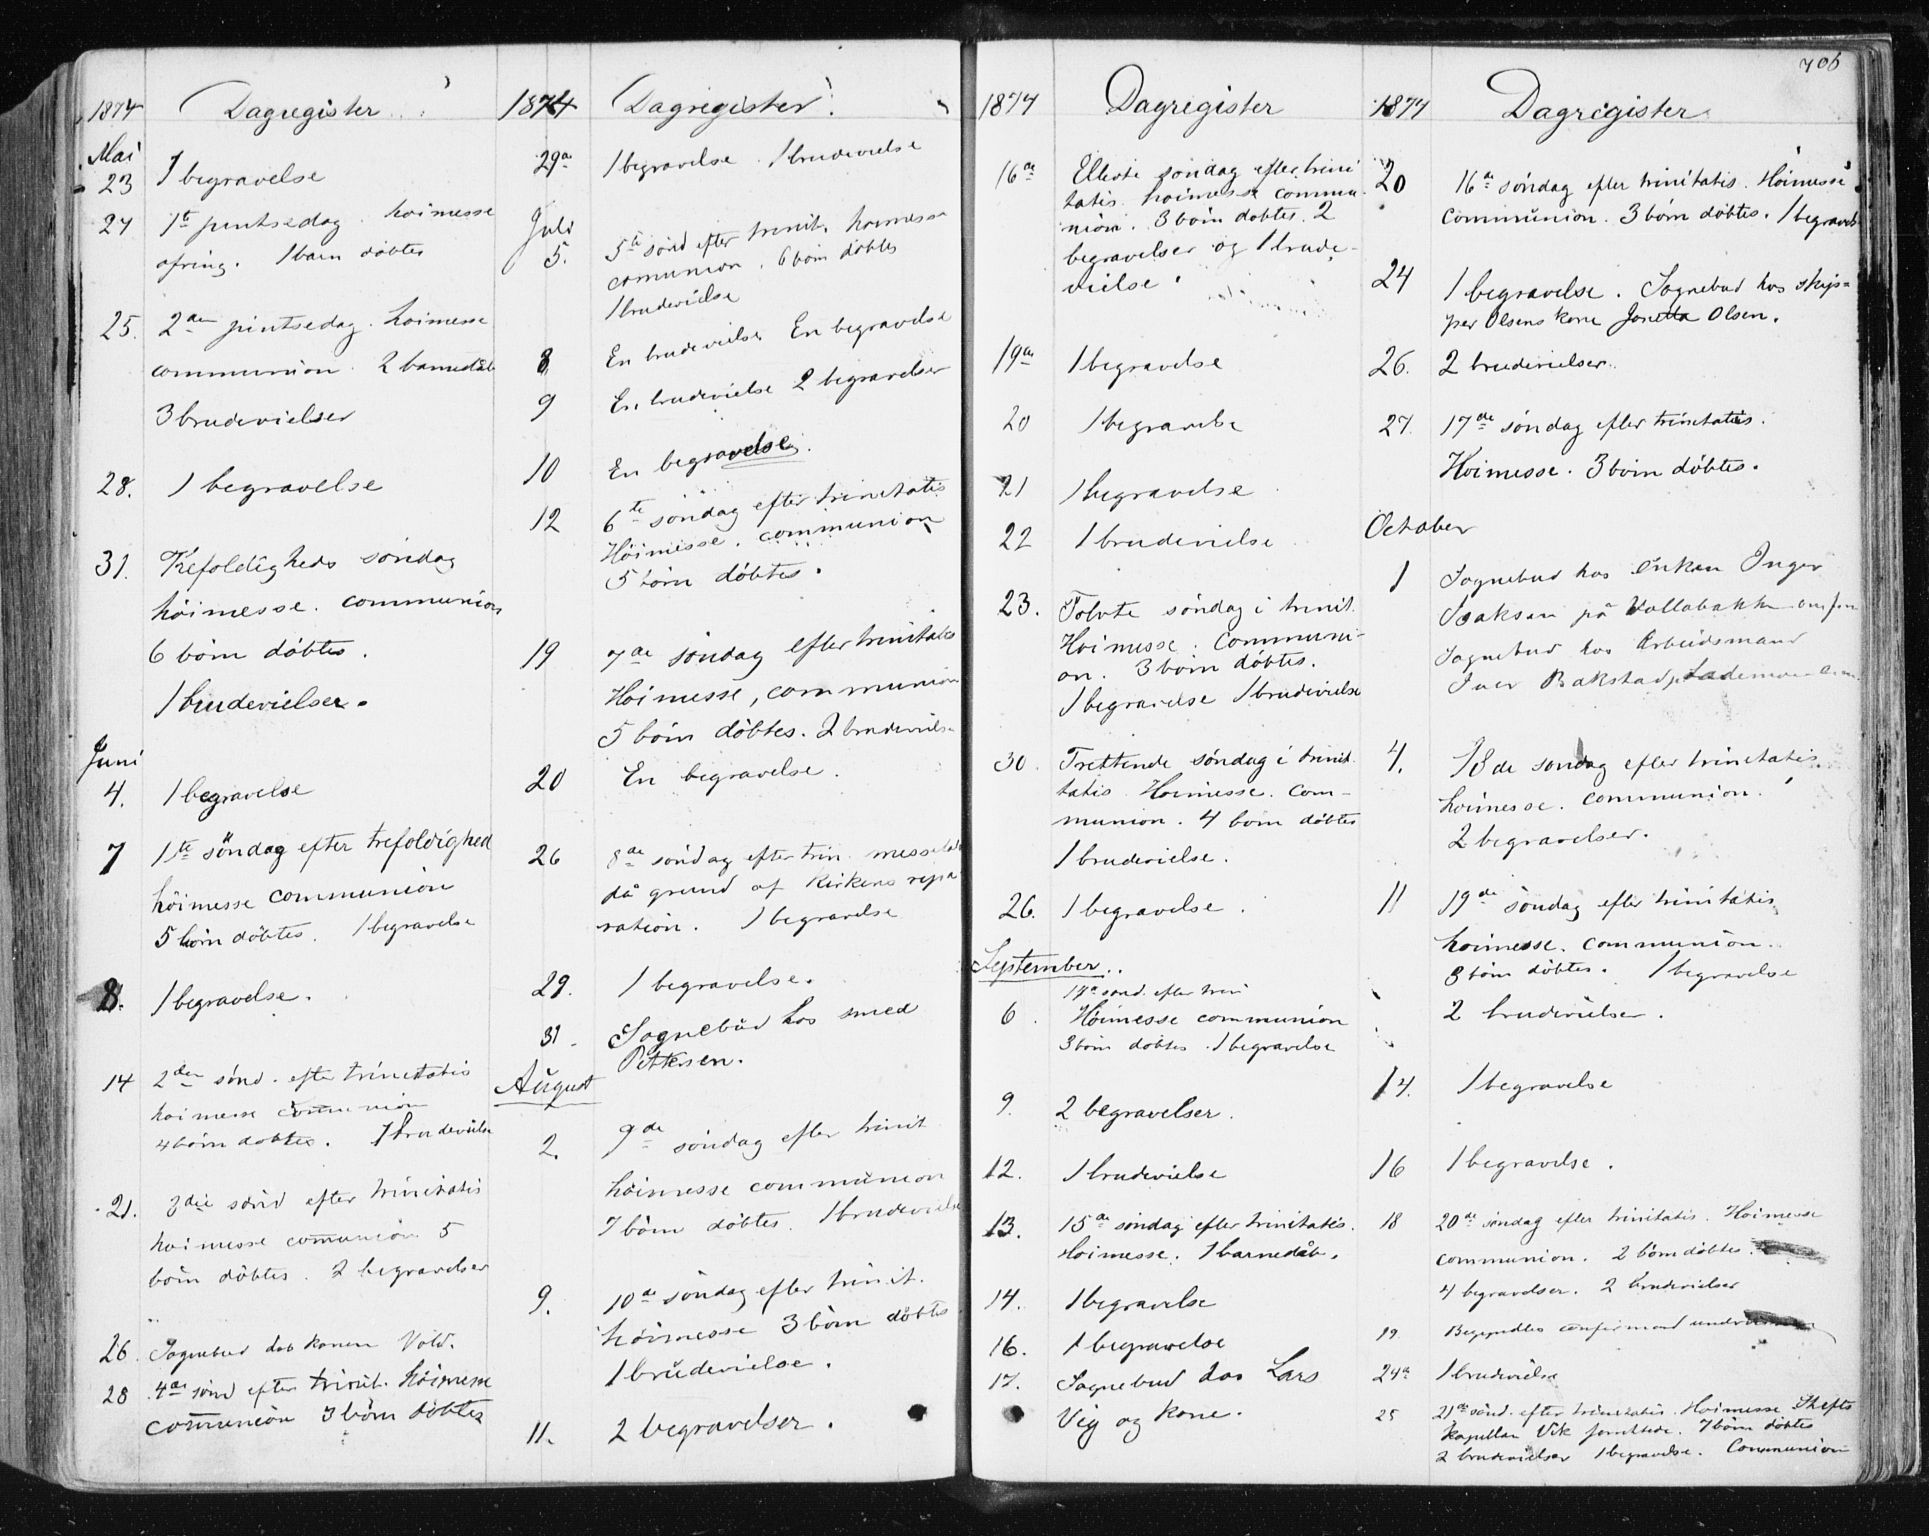 706
1874 Dagregister
Mai
23 1 begravelse
24 1te pintsedag. høimesse
ofring. 1 barn døbtes
25. 2den pintsedag. høimesse
communion. 2 barnedåb
3 brudevielser
28. 1 begravelse
31. Trefoldigheds søndag
høimesse. communion
6 börn döbtes.
1 brudevielser.
Juni
4. 1 begravelse
7 1te söndag efter trefoldighed
höimesse communion
5 börn döbtes. 1 begravelse
8. 1 begravelse.
14 2den sönd. efter trinitatis
höimesse communion
4 börn døbtes. 1 brudevielse
21. 3die sönd efter trinitatis
höimesse communion 5
börn döbtes. 2 begravelser
26. Sognebud konen Vold.
28 4de sönd efter trinit. höimesse
communion 3 börn döbtes
1874 Dagregister
29de 1 begravelse. 1 brudevielse
Juli
5. 5te sönd efter trinit. höimesse
comunion. 6 börn döbtes
1 brudevielse
8 En brudevielse En begravelse
9 En brudevielse 2 begravelser
10 En begravelse.
12 6te söndag efter trinitatis
Höimesse. communion
5 börn döbtes.
19 7de söndag efter trinitatis
Höimesse, communion
5 börn döbtes. 2 brudevielse
20 En begravelse.
26 8de söndag efter trin.
på grund af Kirkens repa
ration. 1 begravelse
29. 1 begravelse.
31. Sognebud hos smed
Pettersen.
August
2. 9de söndag efter trinit
höimesse communion
7 börn döbtes. 1 brudevielse
9. 10de söndag efter trinit.
höimesse 3 börn döbtes
1 brudevielse.
11. 2 begravelser.
1874 Dagregister
16de Ellevte söndag efter trini
tatis. höimesse commu-
nion. 3 börn döbtes. 2
begravelser og 1 brude-
vielse.
19de 1 begravelse
20 1 begravelse
21 1 begravelse
22 1 brudevielse
23. Tolvte söndag i trinit.
Höimesse. Communi-
on. 3 börn döbtes.
1 begravelse 1 brudevielse
30. Trettende söndag i trinit
tatis. Höimesse. Com-
munion. 4 börn döbtes
1 brudevielse.
26. 1 begravelse.
September.
14de sönd. efter trini
6. Höimesse communion
3 börn döbtes. 1 begravelse
9. 2 begravelser.
12. 1 brudevielse
13. 15de söndag efter trinitatis.
Höimesse. 1 barnedåb.
14. 1 begravelse
16. 1 begravelse
17. Sognebud hos Lars
Vig og kone.
1874 Dagregister
20 16de söndag efter trinitatis. Höimesse
Communion. 3 börn döbtes. 1 begravelse
24 1 begravelse. Sognebud hos skip-
per Olsens kone Jonetta Olsen.
26. 2 brudevielser.
27. 17de söndag efter trinitatis.
Höimesse. 3 börn döbtes.
October
1 Sognebud hos enken Inger
Isaksen på Vollabakken
Sognebud hos Arbeidsmand
Iver Bakstad,
4. 18de söndag efter trinitatis.
höimesse. communion.
2 begravelser.
11 19de söndag efter trinitatis
höimesse. communion.
3 börn döbtes. 1 begravelse
2 brudevielser.
14. 1 begravelse
16 1 begravelse.
18 20de söndag efter trinitatis. Höimesse
communion. 2 börn döbtes.
4 begravelser. 2 brudevielser
19. Begyndtes confirmand
24de 1 brudevielse
25 21de sönd. efter trinitatis. Höimesse Stifts
kapellan Vik forrettede. 7 börn döbtes
2 brudevielser 1 begravelse. Communion